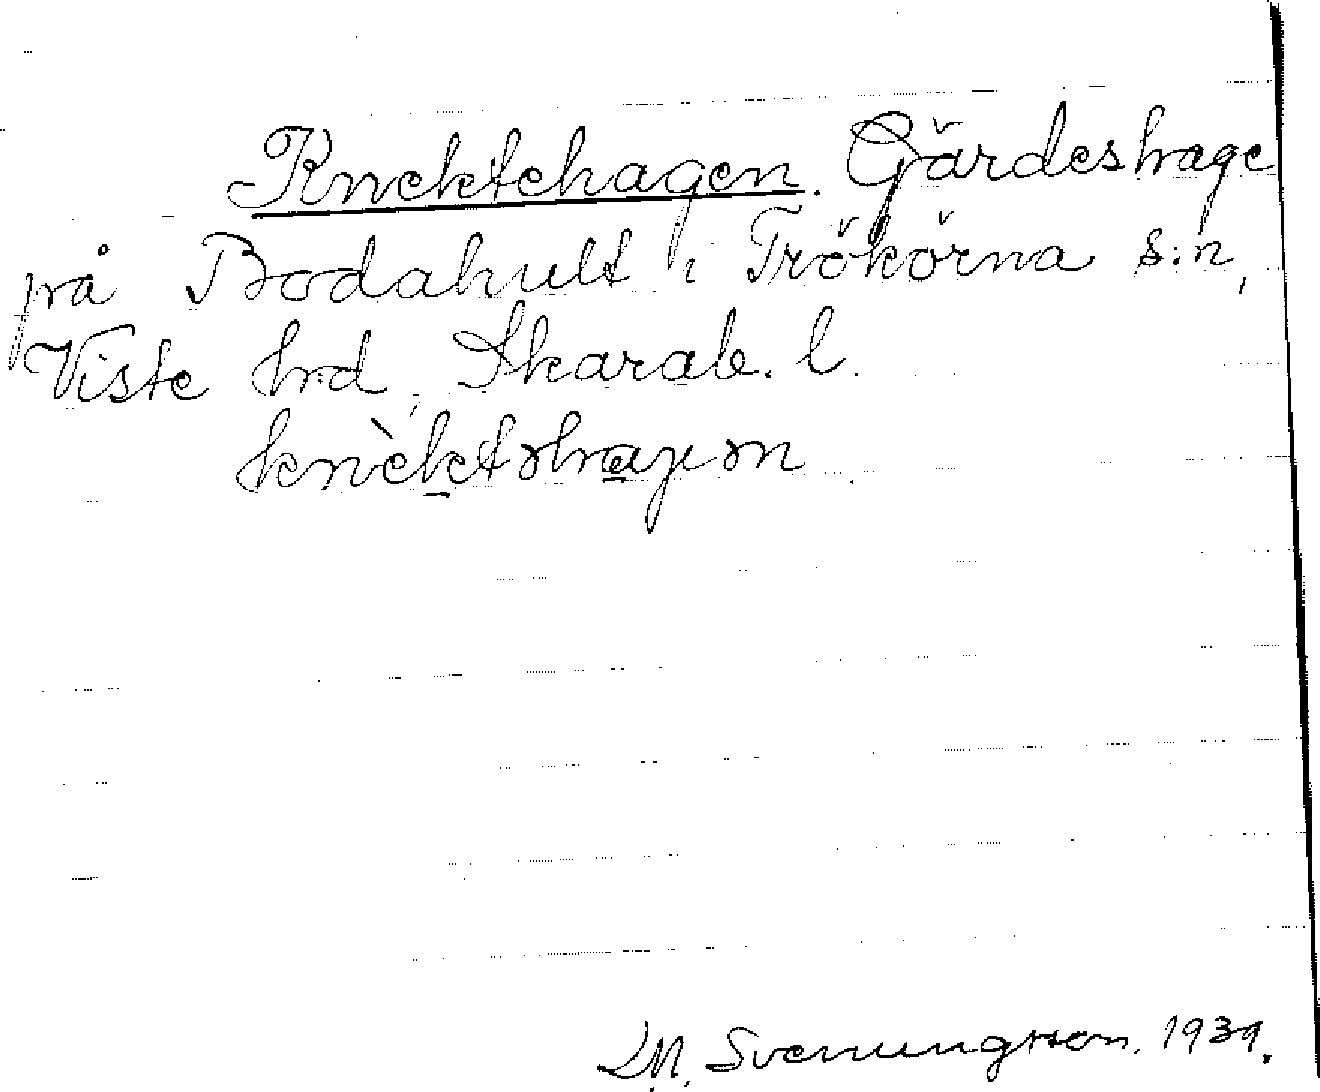 Knektehagen. Gärdeshage
på Bodahult i Trökörna s:n,
Viste hrd, Skarab. l.
knèktəhaɣən
Svenungsson. 1939.